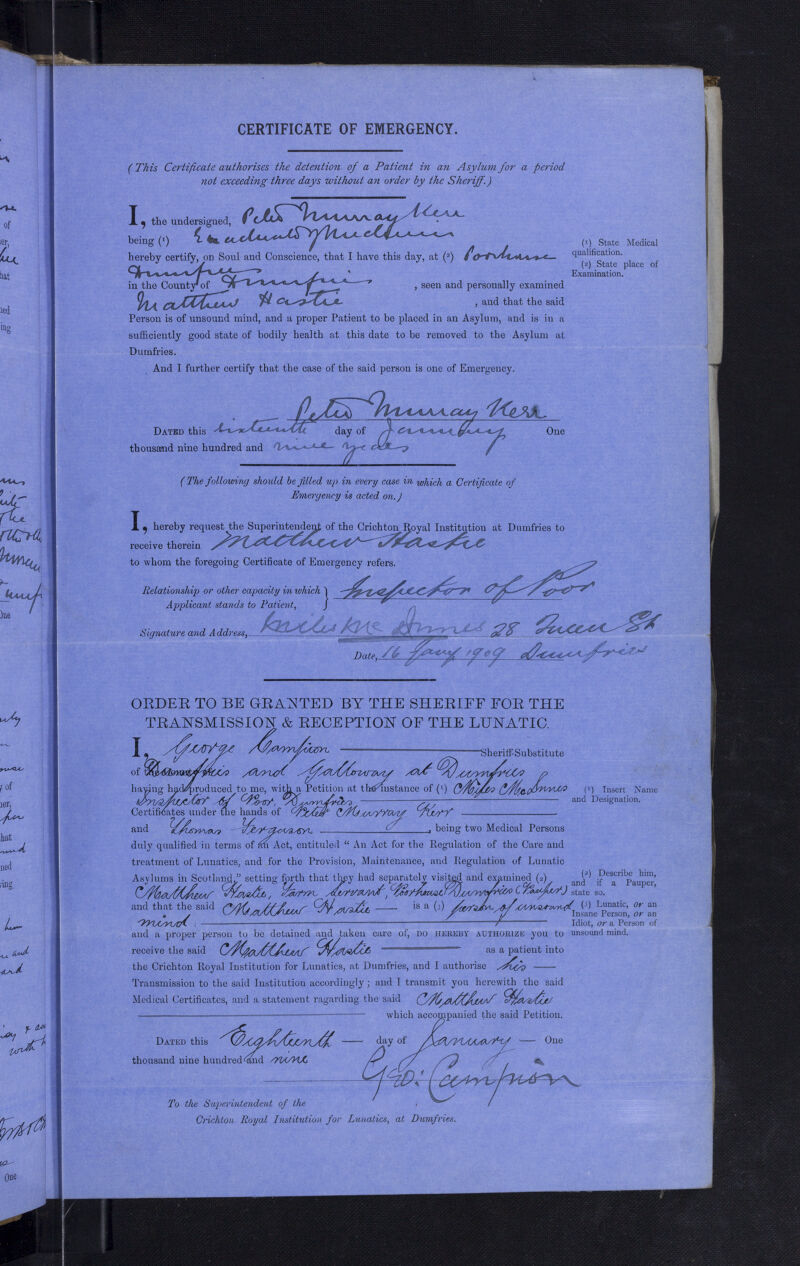 CERTIFICATE OF EMERGENCY.
(This Certificate authorises the detention of a Patient in an Asylum for a period
not exceeding three days without an order by the Sheriff.)
I, the undersigned, Peter Murray Kerr
being (¹)
hereby certify, on Soul and Conscience, that I have this day, at (²) Poorhouse
Dumfries
in the County of Dumfries, seen and personally examined
Matthew Hastie, and that the said
Person is of unsound mind, and a proper Patient to be placed in an Asylum, and is in a
sufficiently good state of bodily health at this date to be removed to the Asylum at
Dumfries.
And I further certify that the case of the said person is one of Emergency.
(¹) State Medical
qualification.
(²) State place of
Examination.
Peter Murray Kerr
DATED this sixteenth day of January One
thousand nine hundred and nine years
(The following should be filled up in every case in which a Certificate of
Emergency is acted on.)
I, hereby request the Superintendent of the Crichton Royal Institution at Dumfries to
receive therein Matthew Hastie
to whom the foregoing Certificate of Emergency refers.
Relationship or other capacity in which } Inspector of Poor
Applicant stands to Patient,
Signature and Address, Miles McInnes 28 Queen St
Date, 16 Jany 1909 Dumfries
ORDER TO BE GRANTED BY THE SHERIFF FOR THE
TRANSMISSION & RECEPTION OF THE LUNATIC.
I, George Campion Sheriff-Substitute
of Dumfries and Galloway at Dumfries
having had produced to me, with a Petition at the instance of (¹) Miles McInnes
Inspector of Poor, Dumfries
Certificates under the hands of Peter Murray Kerr
and Thomas Ferguson, being two Medical Persons
duly qualified in terms of an Act, entituled "An Act for the Regulation of the Care and
treatment of Lunatics, and for the Provision, Maintenance, and Regulation of Lunatic
Asylums in Scotland," setting forth that they had separately visited and examined (²)
Matthew Hastie, Farm Servant, Poorhouse Dumfries (Pauper)
and that the said Matthew Hastie is a (³) person of unsound
mind
and a proper person to be detained and taken care of, DO HEREBY AUTHORIZE you to
receive the said Matthew Hastie as a patient into
the Crichton Royal Institution for Lunatics, at Dumfries, and I authorise his
Transmission to the said Institution accordingly; and I transmit you herewith the said
Medical Certificates, and a statement ragarding the said Matthew Hastie
which accompanied the said Petition.
(¹) Insert Name
and Designation.
(²) Describe him,
and if a Pauper,
state so.
(³) Lunatic, or an
Insane Person, or an
Idiot, or a Person of
unsound mind.
DATED this Eighteenth day of January One
thousand nine hundred and nine
Geo: Campion
To the Superintendent of the
Crichton Royal Institution for Lunatics, at Dumfries.